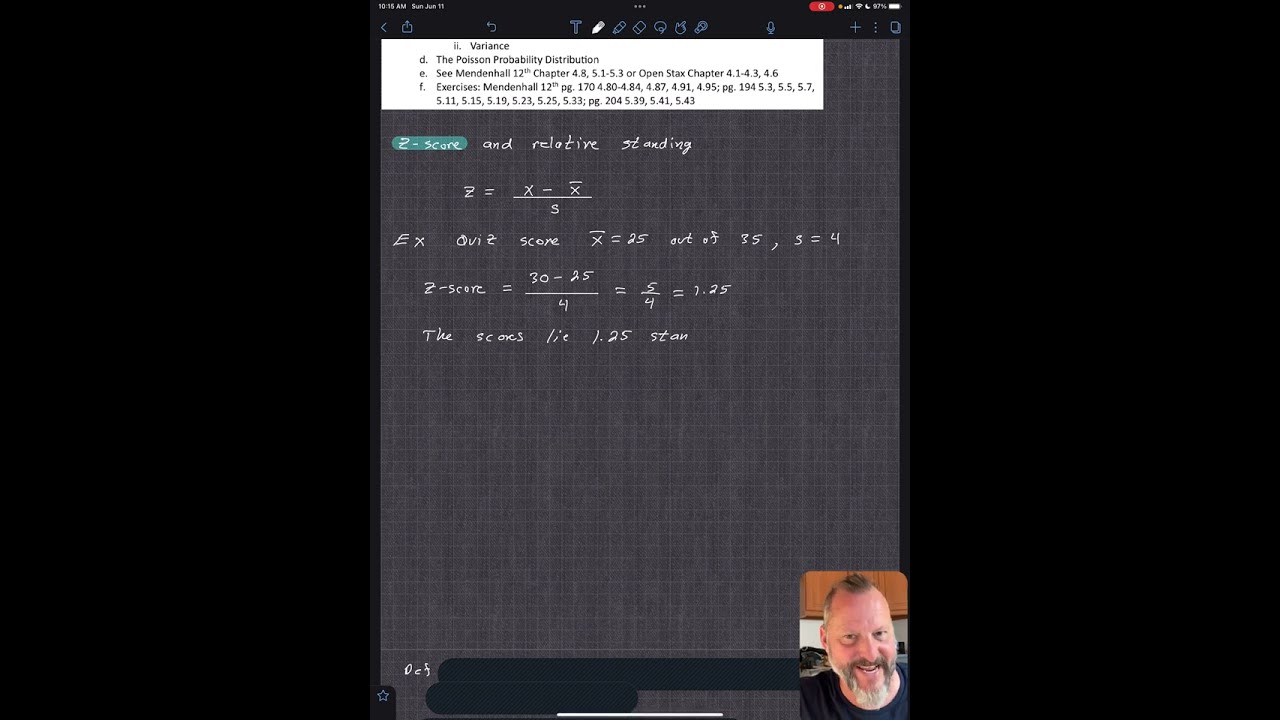 10:15 AM Sun Jun 11
97%
ii. Variance
d. The Poisson Probability Distribution
e. See Mendenhall 12th Chapter 4.8, 5.1-5.3 or Open Stax Chapter 4.1-4.3, 4.6
f. Exercises: Mendenhall 12th pg. 170 4.80-4.84, 4.87, 4.91, 4.95; pg. 194 5.3, 5.5, 5.7,
5.11, 5.15, 5.19, 5.23, 5.25, 5.33; pg. 204 5.39, 5.41, 5.43
Z-score and relative standing
z = (x - x̄) / s
Ex Quiz score x̄ = 25 out of 35, s = 4
Z-score = (30 - 25) / 4 = 5/4 = 1.25
The scores lie 1.25 stan
Def